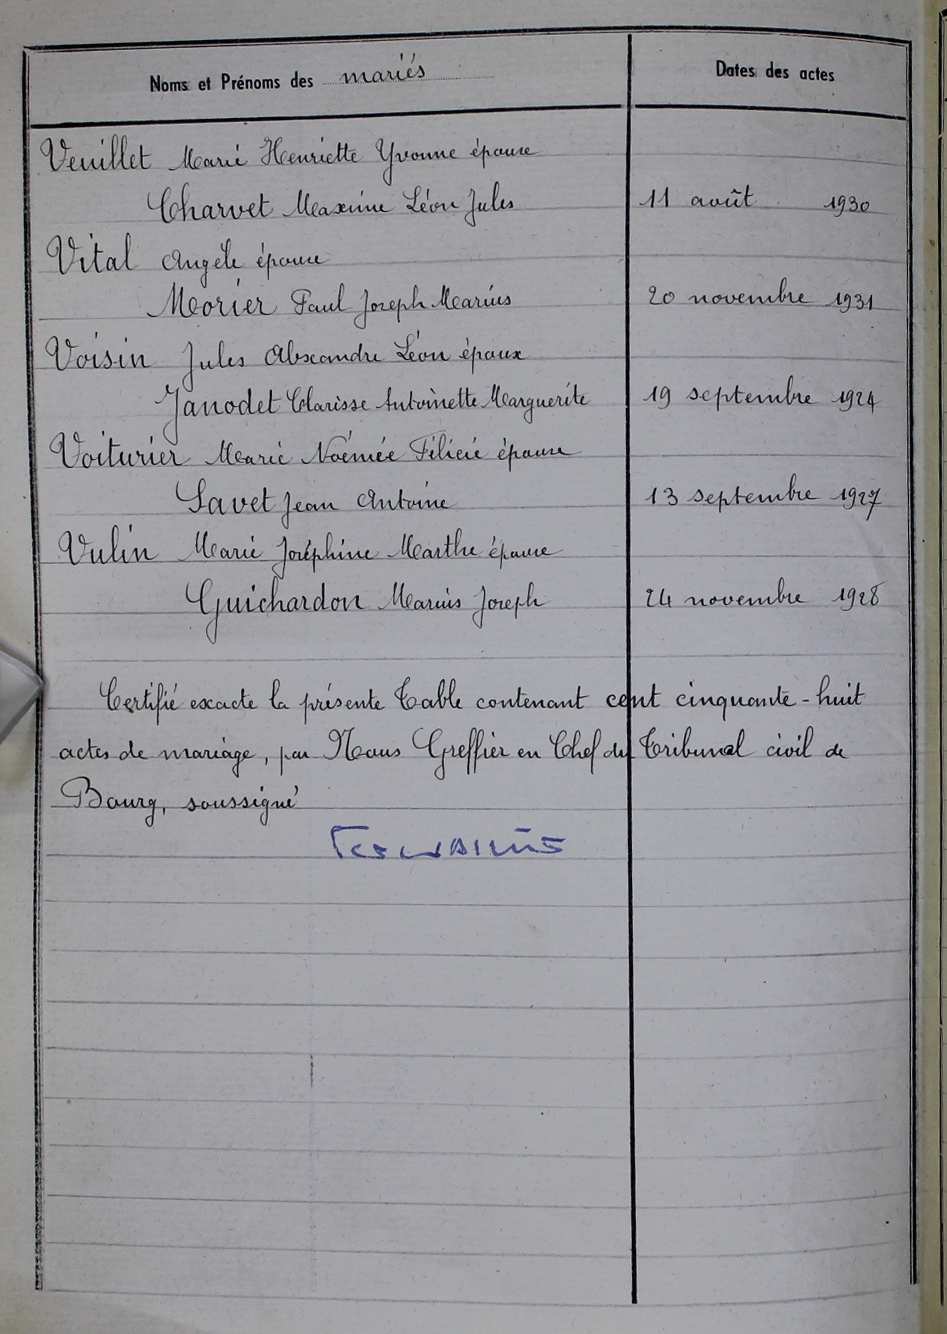 Noms et Prénoms des mariés Dates des actes
Veuillet Marie Henriette Yvonne épouse
Charvet Maxime Léon Jules 11 août 1930
Vital Angèle épouse
Morier Paul Joseph Marius 20 novembre 1931
Voisin Jules Alexandre Léon époux
Janodet Clarisse Antoinette Marguerite 19 septembre 1924
Voiturier Marie Noémée Félicie épouse
Savet Jean Antoine 13 septembre 1927
Vulin Marie Joséphine Marthe épouse
Guichardon Marius Joseph 24 novembre 1928
Certifié exacte la présente Table contenant cent cinquante-huit
actes de mariage, par Nous Greffier en Chef du Tribunal civil de
Bourg, soussigné